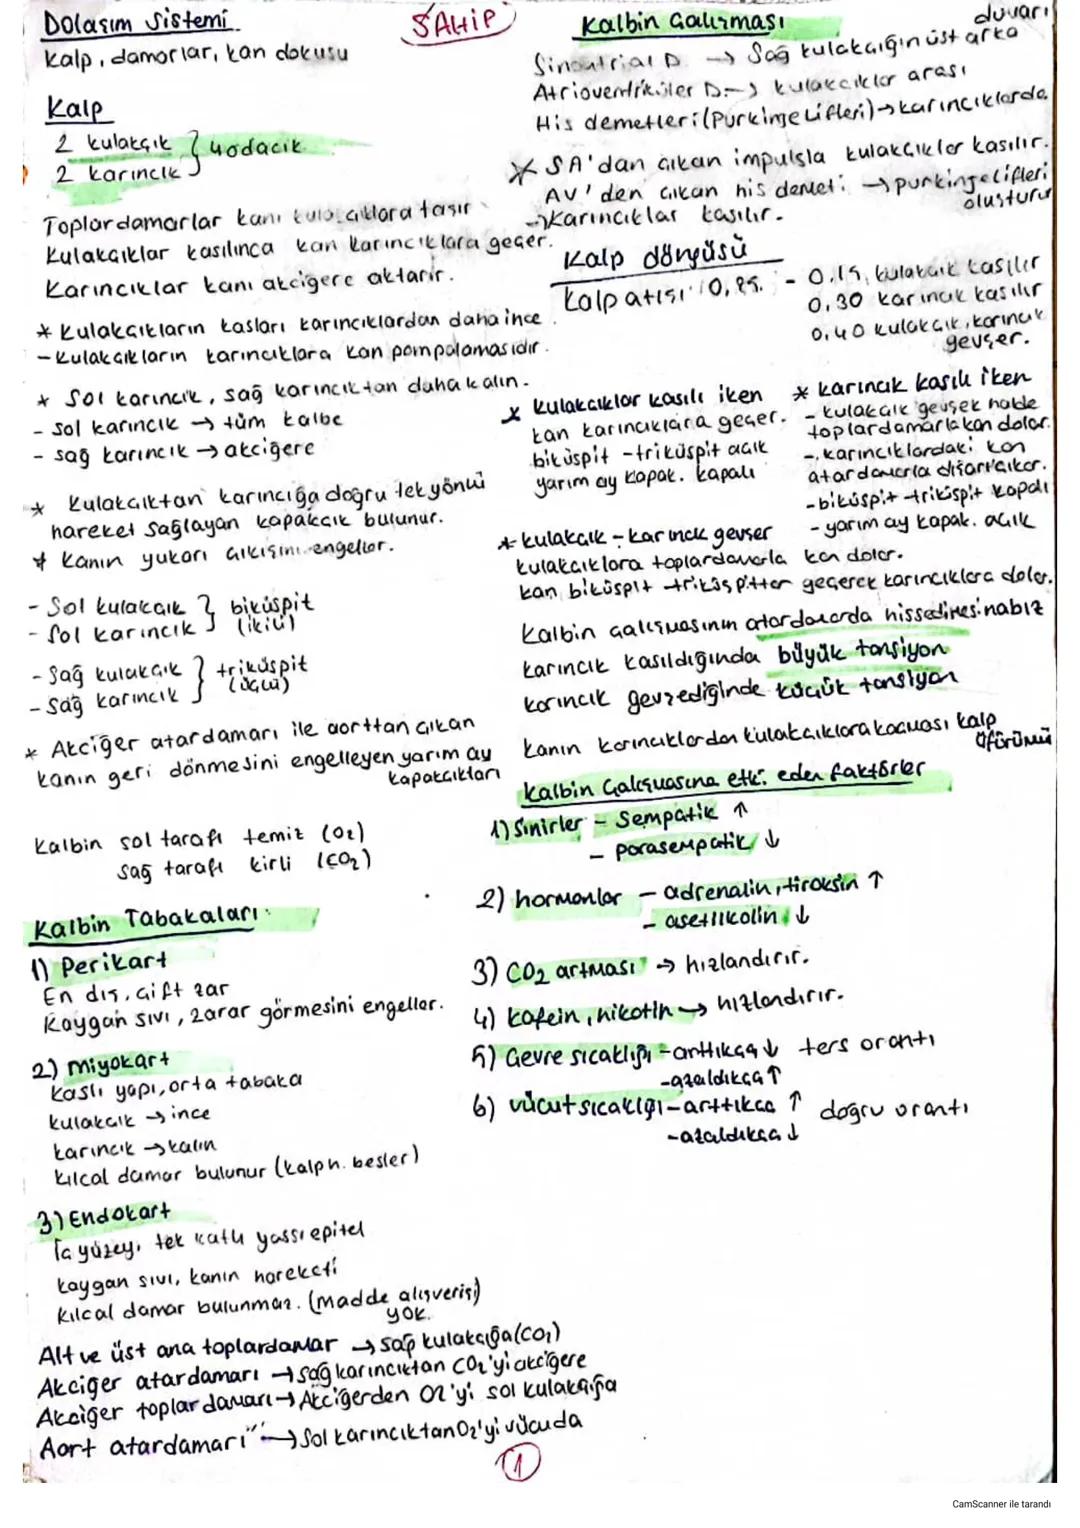 Dolaşım Sistemi
ŞAHİP
kalp, damarlar, kan dokusu
Kalp
2 kulakçık } 4 odacık
2 karıncık
Toplardamarlar kanı kulakçıklara taşır
Kulakçıklar kasılınca kan karıncıklara geçer.
Karıncıklar kanı akciğere aktarır.
* Kulakçıkların kasları karıncıklardan daha ince.
- Kulakçıkların karıncıklara kan pompalamasıdır.
* Sol karıncık, sağ karıncıktan daha kalın.
- sol karıncık → tüm kalbe
- sağ karıncık → akciğere
* Kulakçıktan karıncığa doğru tek yönlü
hareket sağlayan kapakçık bulunur.
* Kanın yukarı çıkışını engeller.
- Sol kulakçık } biküspit
- Sol karıncık (ikili)
- Sağ kulakçık } triküspit
- Sağ karıncık (üçlü)
* Akciğer atardamarı ile aorttan çıkan
kanın geri dönmesini engelleyen yarım ay
kapakçıkları
Kalbin sol tarafı temiz (O₂)
sağ tarafı kirli (CO₂)
Kalbin Tabakaları:
1) Perikart
En dış, çift zar
Kaygan sıvı, zarar görmesini engeller.
2) Miyokart
Kaslı yapı, orta tabaka
kulakçık → ince
karıncık → kalın
kılcal damar bulunur (kalp h. besler)
3) Endokart
İç yüzey, tek katlı yassı epitel
kaygan sıvı, kanın hareketi
kılcal damar bulunmaz. (madde alışverişi)
yok.
Alt ve üst ana toplardamar → sağ kulakçığa (CO₂)
Akciğer atardamarı → sağ karıncıktan CO₂'yi akciğere
Akciğer toplardamarı → Akciğerden O2'yi sol kulakçığa
Aort atardamarı → Sol karıncıktan O₂'yi vücuda
1
Kalbin Çalışması
Sinoatrial D. → Sağ kulakçığın üst arka duvarı
Atrioventriküler D. → kulakçıklar arası
His demetleri (Purkinje Lifleri) → karıncıklarda
* SA'dan çıkan impulsla kulakçıklar kasılır.
AV'den çıkan his demeti → purkinje lifleri
oluşturur
→ Karıncıklar kasılır.
Kalp döngüsü
Kalp atışı 0,85. - 0.15, kulakçık kasılır
0,30 karıncık kasılır
0,40 kulakçık, karıncık
gevşer.
* Kulakcıklar kasılı iken
kan karıncıklara geçer.
biküspit - triküspit açık
yarım ay kapak. kapalı
* karıncık kasılı iken
- kulakçık gevşek halde
toplardamarla kan dolar.
- karıncıklardaki kan
atardamarla dışarı çıkar.
- biküspit triküspit kapalı
- yarım ay kapak. açık
* kulakçık - karıncık gevşer
kulakçıklara toplardamarla kan dolar.
kan biküspit triküspitten geçerek karıncıklara dolar.
Kalbin çalışmasının atardamarda hissedilmesi nabız
karıncık kasıldığında büyük tansiyon
karıncık gevşediğinde küçük tansiyon
kanın karıncıklardan kulakçıklara kaçması kalp
üfürümü
Kalbin Çalışmasına etki eden faktörler
1) Sinirler - Sempatik ↑
- parasempatik ↓
2) hormonlar - adrenalin, tiroksin ↑
- asetilkolin ↓
3) CO₂ artması → hızlandırır.
4) kafein, nikotin → hızlandırır.
5) Çevre sıcaklığı - arttıkça ↓ ters orantı
- azaldıkça ↑
6) vücut sıcaklığı - arttıkca ↑ doğru orantı
- azaldıkça ↓
CamScanner ile tarandı